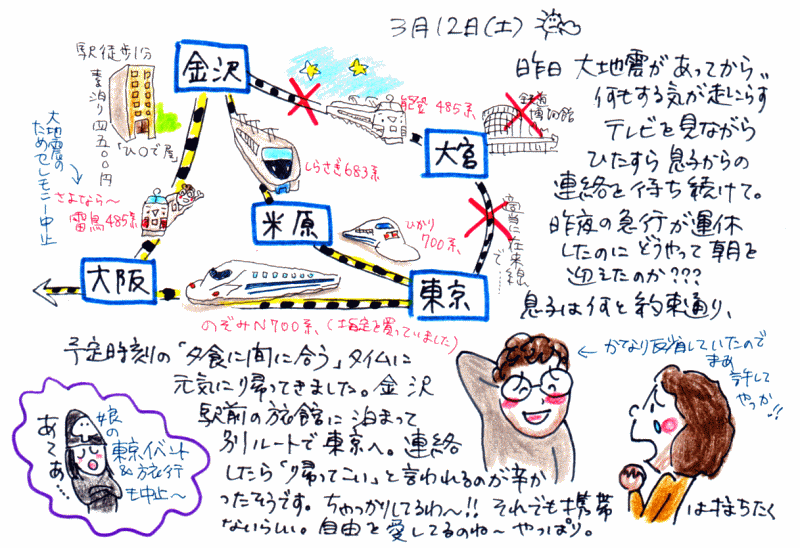 3月12日(土)
昨日 大地震があってから
何もする気が起こらず
テレビを見ながら
ひたすら息子からの
連絡を待ち続けて。
昨夜の急行が運休
したのにどうやって朝を
迎えたのか???
息子は何と約束通り、
予定時刻の「夕食に間に合う」タイムに
元気に帰ってきました。金沢
駅前の旅館に泊まって
別ルートで東京へ。連絡
したら「帰ってこい」と言われるのが辛か
ったそうです。ちゃっかりしてるわ〜!! それでも携帯は持ちたく
ないらしい。自由を愛してるのね〜やっぱり。
駅徒歩1分
素泊り四五〇〇円
「ひ〇で屋」
金沢
能登485系
鉄道
博物館
大宮
しらさぎ683系
大地震の
ためセレモニー中止
さよなら〜
雷鳥485系
米原
ひかり
700系
適当に在来線
で…
大阪
東京
のぞみN700系(指定を買っていました)
← かなり反省していたので
まあ
許して
やっか!!
娘の
東京イベント
&旅行
も中止〜
あ〜あ…